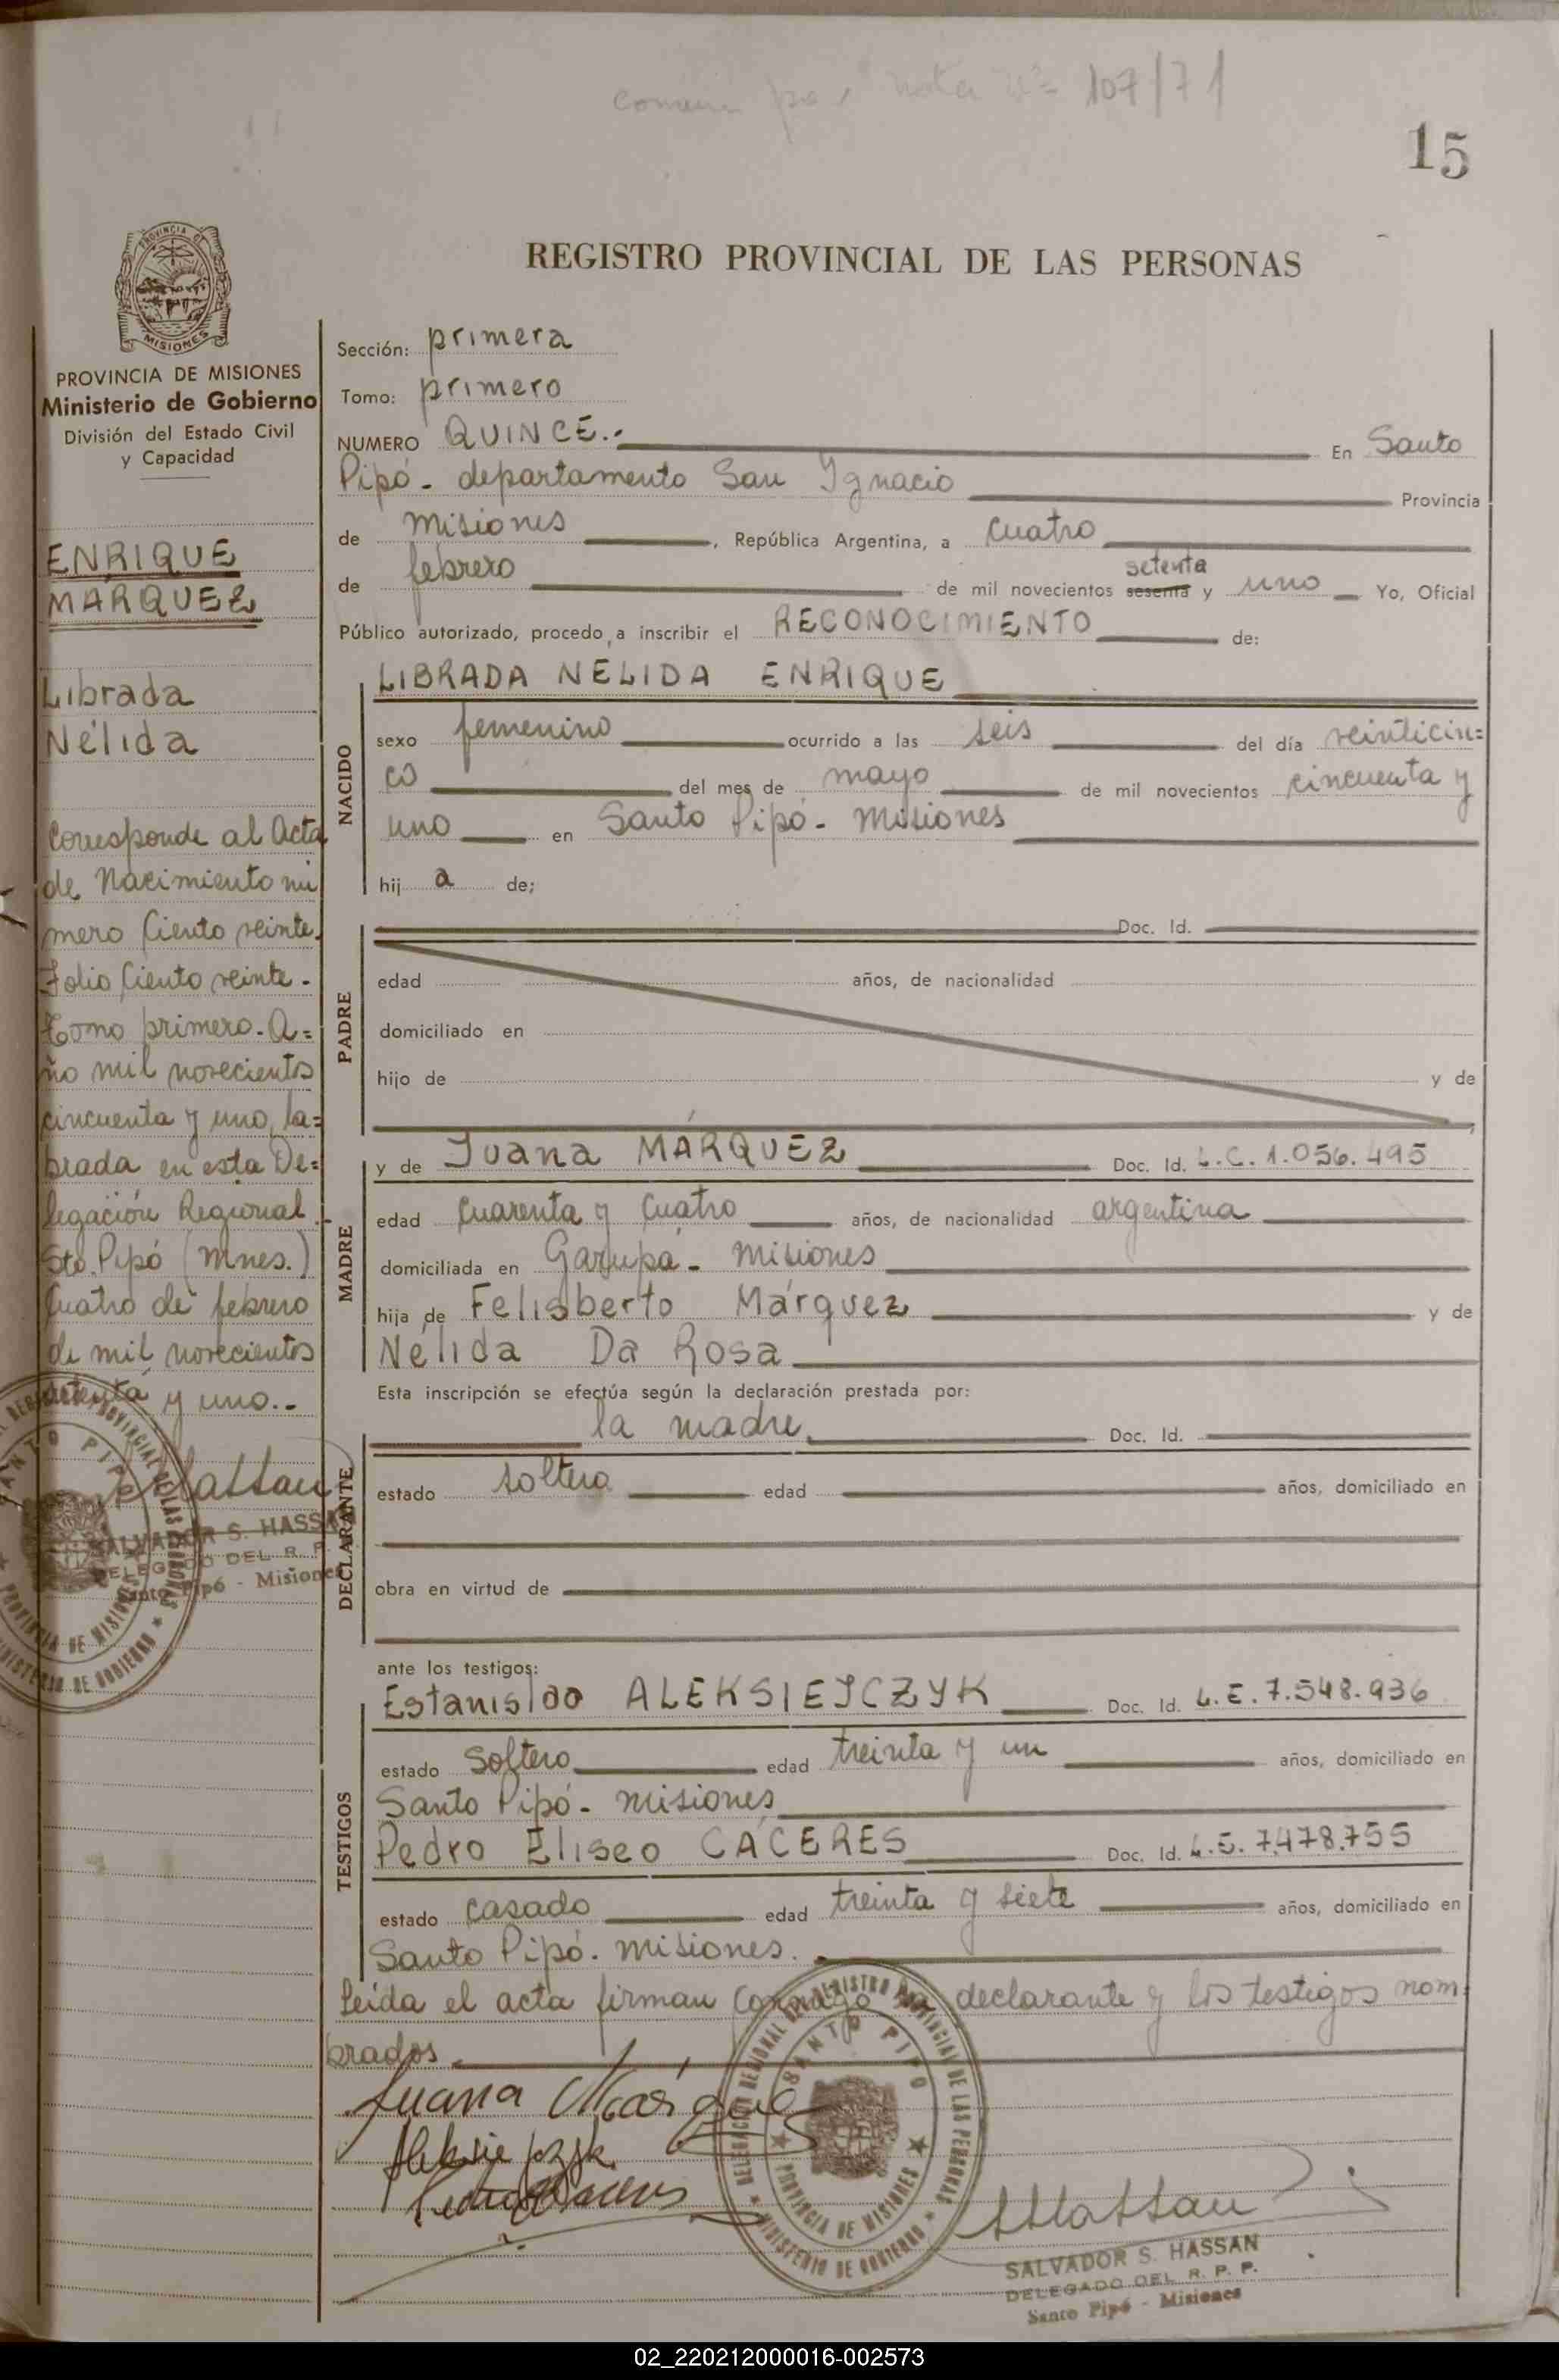 nota Nº 107/71
15
REGISTRO PROVINCIAL DE LAS PERSONAS
PROVINCIA DE
MISIONES
PROVINCIA DE MISIONES
Ministerio de Gobierno
División del Estado Civil
y Capacidad
ENRIQUE
MÁRQUEZ
Librada
Nélida
Corresponde al Acta
de Nacimiento nú
mero Ciento veinte.
Folio Ciento veinte.
Tomo primero. A=
ño mil novecientos
cincuenta y uno, la=
brada en esta De=
legación Regional.
Sto. Pipó (Mnes.)
Cuatro de febrero
de mil novecientos
setenta y uno.-
SALVADOR S. HASSAN
DELEGADO DEL R. P. P.
Santo Pipó - Misiones
Sección: primera
Tomo: primero
NUMERO QUINCE.- En Santo
Pipó- departamento San Ignacio Provincia
de Misiones, República Argentina, a cuatro
setenta
de febrero de mil novecientos sesenta y uno Yo, Oficial
Público autorizado, procedo a inscribir el RECONOCIMIENTO de:
NACIDO
LIBRADA NÉLIDA ENRIQUE
sexo femenino ocurrido a las seis del día veinticin=
co del mes de mayo de mil novecientos cincuenta y
uno en Santo Pipó- Misiones
hij a de;
PADRE
Doc. Id.
edad años, de nacionalidad
domiciliado en
hijo de y de
MADRE
y de Juana MÁRQUEZ Doc. Id. L.C. 1.056.495
edad cuarenta y cuatro años, de nacionalidad argentina
domiciliada en Garupá- Misiones
hija de Felisberto Márquez y de
Nélida Da Rosa
Esta inscripción se efectúa según la declaración prestada por:
DECLARANTE
la madre, Doc. Id.
estado soltera edad años, domiciliado en
obra en virtud de
ante los testigos:
TESTIGOS
Estanislao ALEKSIEJCZYK Doc. Id. L.E. 7.548.936
estado soltero edad treinta y un años, domiciliado en
Santo Pipó- Misiones
Pedro Eliseo CÁCERES Doc. Id. L.E. 7.478.755
estado casado edad treinta y siete años, domiciliado en
Santo Pipó. Misiones.
Leída el acta firman conmigo la declarante y los testigos nom
brados.
Juana Marquez
Aleksiejczyk
DELEGACION REGIONAL DEL REGISTRO PROVINCIAL DE LAS PERSONAS
SANTO PIPO
PROVINCIA DE MISIONES
MINISTERIO DE GOBIERNO
SALVADOR S. HASSAN
DELEGADO DEL R. P. P.
Santo Pipó - Misiones
02_220212000016-002573